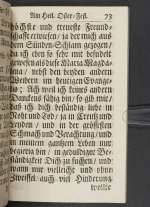 Am Heil. Oster-Fest. 73
höchste und treueste Freund-
schafft erwiesen / ja der mich aus
dem Sünden-Schlam gezogen /
da ich eben so sehr mit besudelt
gewesen als diese Maria Magda-
lena / nebst den beyden andern
Weibern im heutigen Evange-
Ach weil ich keines andern
Danckens fähig bin / so gib mir /
daß ich dich beständig liebe in
Noht und Tod / ja in Creutz und
Leyden / und in der grösten
Schmach und Verachtung / und
in meinem gantzen Leben nur
begierig bin / in geduldiger Be-
ständigkeit Dich zu suchen / und
wann mir vielleicht und ohne
Zweiffel auch viel Hinderung